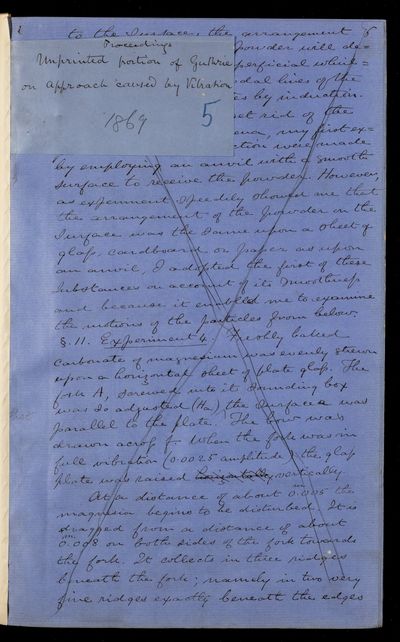 to the Surface, the arrangement
Proceedings
Unprinted portion of Guthrie
on approach caused by Vibration
1869
5
powder will de=
perficial whirl=
dal lines of the
es by induction.
et rid of the
my first ex=
tion were made
by employing an anvil with a smooth
surface to receive the powder. However,
as experiment speedily showed me that
the arrangement of the powder on the
surface was the same upon a sheet of
glass, cardboard or paper as upon
an anvil, I adopted the first of these
substances on account of its smoothness
and because it enabled me to examine
the motions of the particles from below.
§. 11. Experiment 4. Freshly baked
carbonate of magnesium was evenly strewn
upon a horizontal sheet of plate glass. The
fork A, screwed into its sounding box
was so adjusted (Ha) the surfaces was
parallel to the plate. The bow was
drawn across & when the fork was in
full vibration (0.0025 amplitude) the glass
plate was raised horizontally vertically
At a distance of about 0.m005 the
magnesia begins to be disturbed. It is
dragged from a distance of about
0.m008 on both sides of the fork towards
the fork. It collects in three ridges
beneath the fork; namely in two very
fine ridges exactly beneath the edges